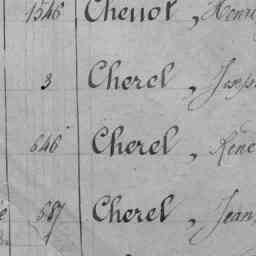 1546 Chenot, Henri
3 Cherel, Josep
646 Cherel, René
687 Cherel, Jean